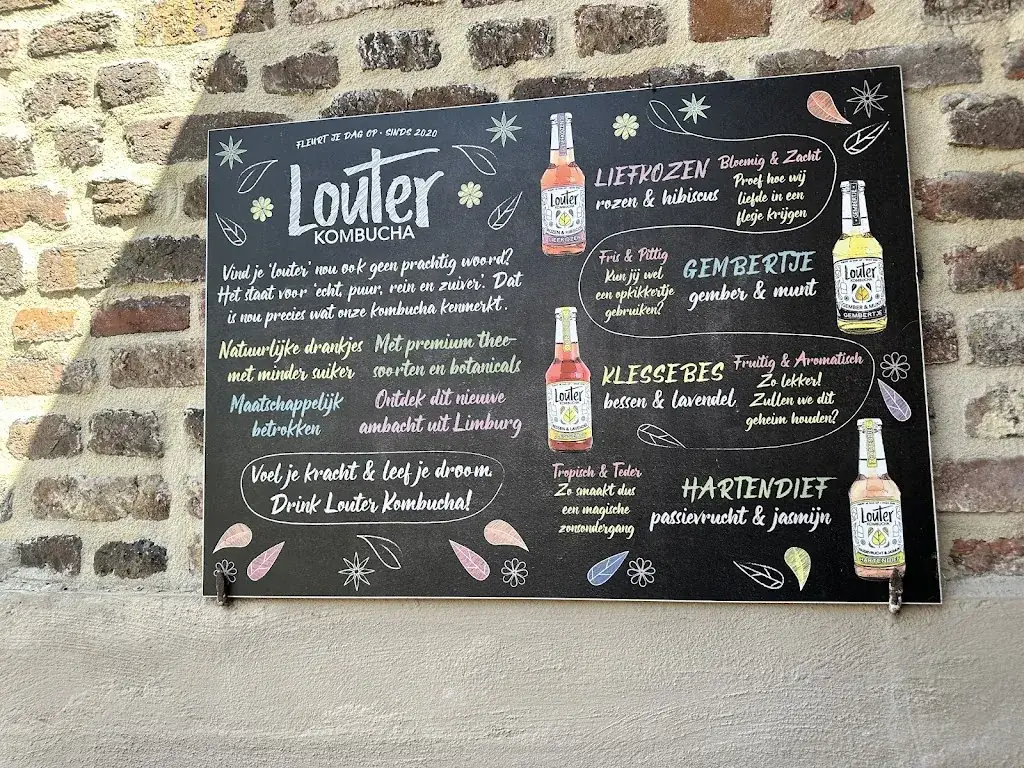 FLEURT JE DAG OP • SINDS 2020
Louter
KOMBUCHA
Vind je 'louter' nou ook geen prachtig woord?
Het staat voor 'echt, puur, rein en zuiver'. Dat
is nou precies wat onze kombucha kenmerkt.
Natuurlijke drankjes
met minder suiker
Met premium thee-
soorten en botanicals
Maatschappelijk
betrokken
Ontdek dit nieuwe
ambacht uit Limburg
Voel je kracht & leef je droom.
Drink Louter Kombucha!
Louter
KOMBUCHA
ROZEN & HIBISCUS
LIEFKOZEN
LIEFKOZEN
rozen & hibiscus
Bloemig & Zacht
Proef hoe wij
liefde in een
flesje krijgen
Fris & Pittig
Kun jij wel
een opkikkertje
gebruiken?
GEMBERTJE
gember & munt
Louter
KOMBUCHA
GEMBER & MUNT
GEMBERTJE
Louter
KOMBUCHA
BESSEN & LAVENDEL
KLESSEBES
bessen & lavendel
Fruitig & Aromatisch
Zo lekker!
Zullen we dit
geheim houden?
Tropisch & Teder
Zo smaakt dus
een magische
zonsondergang
HARTENDIEF
passievrucht & jasmijn
Louter
KOMBUCHA
PASSIEVRUCHT & JASMIJN
HARTENDIEF